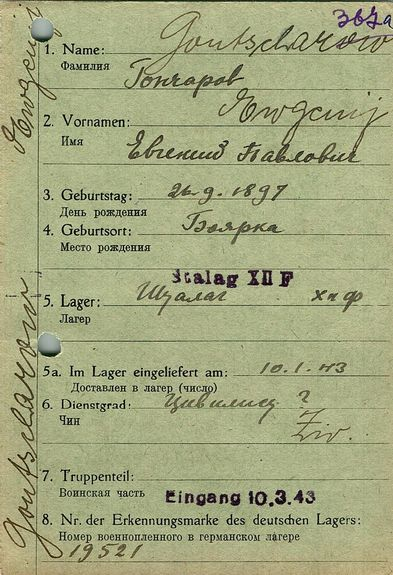 367a
1. Name: Gontscharow
Фамилия Гончаров
Ewgenij
2. Vornamen:
Имя Евгений Павлович
3. Geburtstag: 26.9.1897
День рождения
4. Geburtsort: Боярка
Место рождения
Stalag XII F
5. Lager: Шталаг XII Ф
Лагерь
5a. Im Lager eingeliefert am: 10.1.43
Доставлен в лагерь (число)
6. Dienstgrad: Цивилист ?
Чин Ziv.
7. Truppenteil:
Воинская часть Eingang 10.3.43
8. Nr. der Erkennungsmarke des deutschen Lagers:
Номер военнопленного в германском лагере
19521
Gontscharow Ewgenij